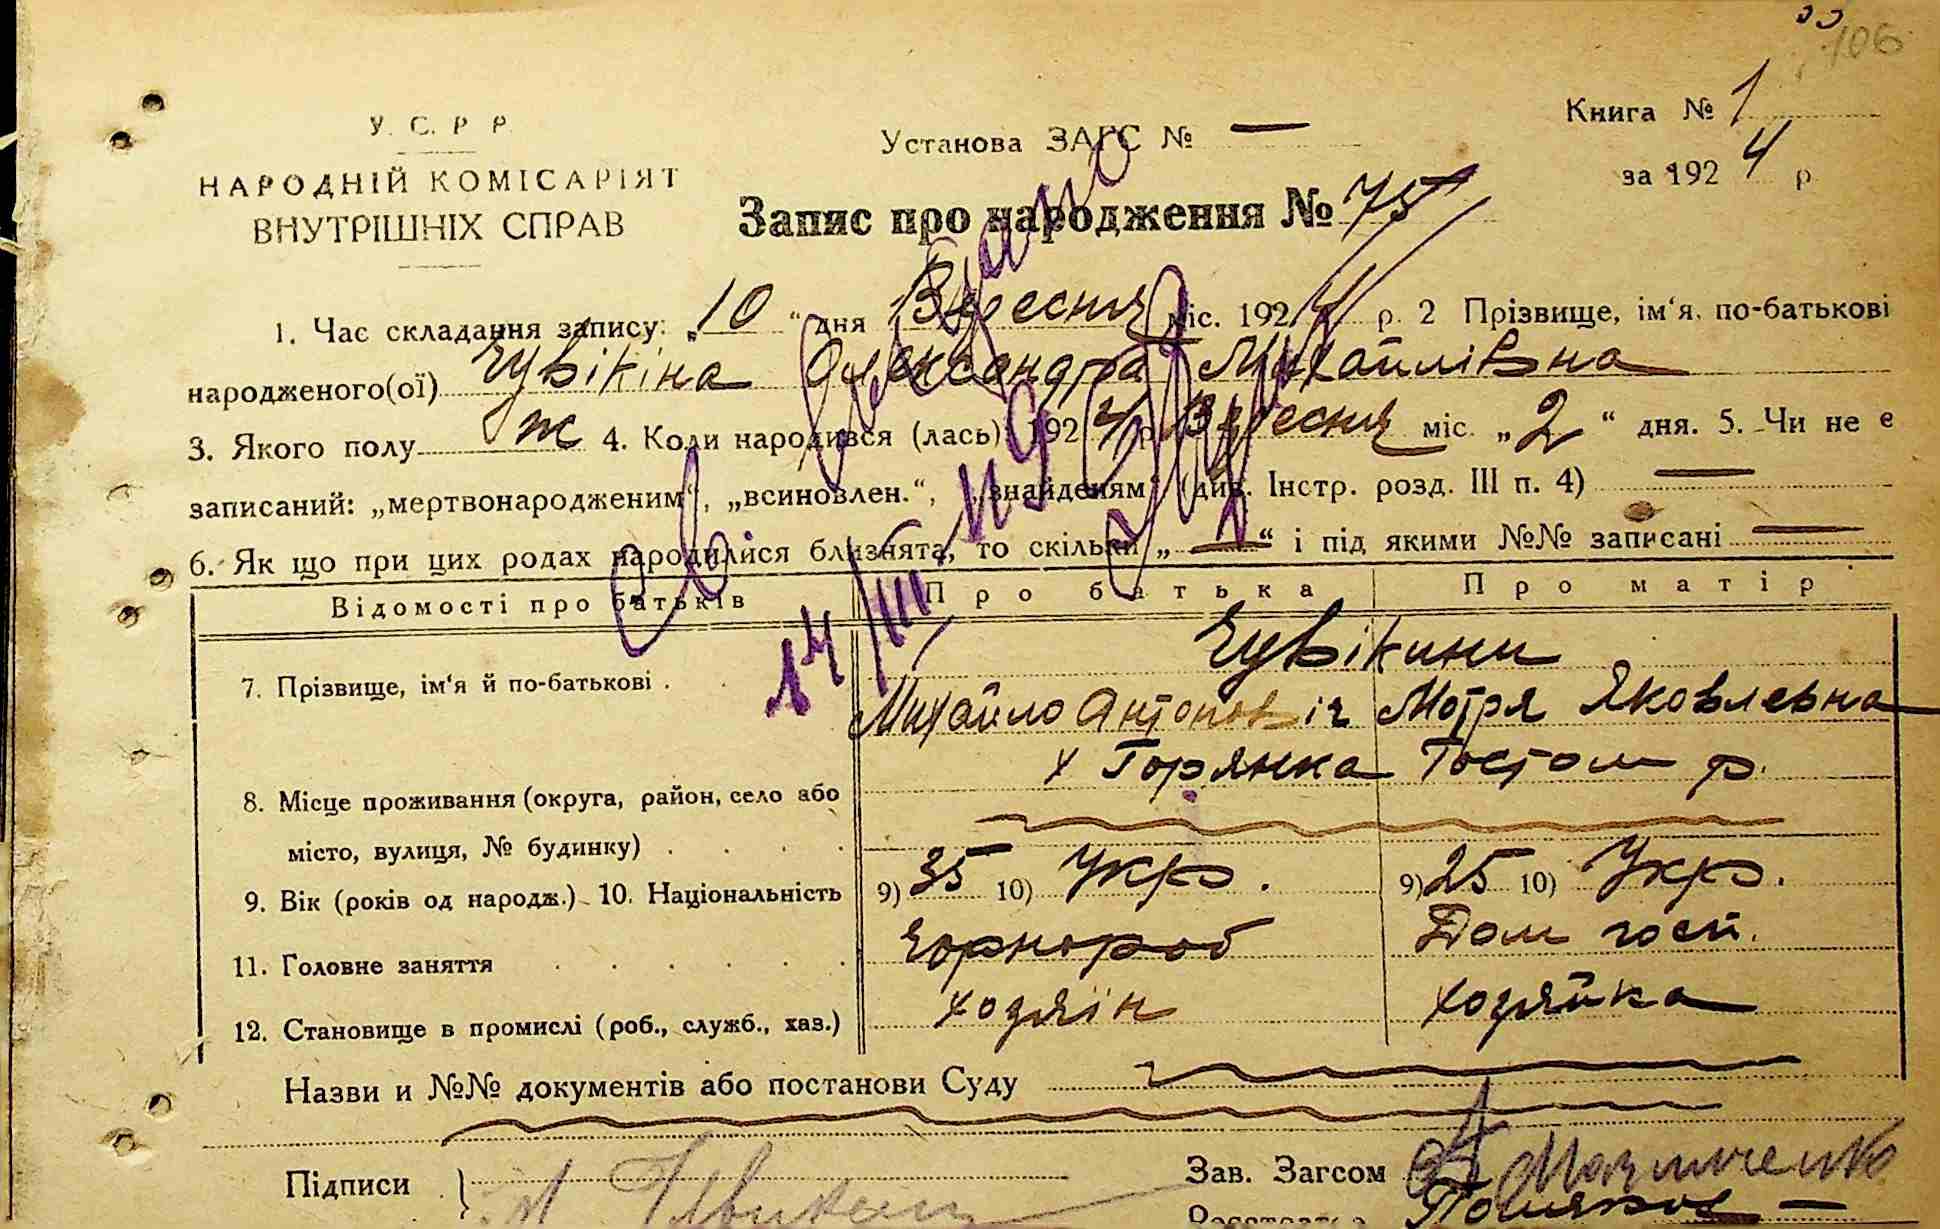 106
У. С. Р Р
Книга № 1
Установа ЗАГС № —
НАРОДНІЙ КОМІСАРІЯТ
за 1924 р
ВНУТРІШНІХ СПРАВ
Запис про народження № 75
1. Час складання запису: „10“ дня Вересня міс. 1924 р. 2 Прізвище, ім'я, по-батькові
народженого(ої) Чувікіна Олександра Михайлівна
3. Якого полу ж 4. Коли народився (лась) 1924 р Вересня міс. „2“ дня. 5. Чи не є
записаний: „мертвонародженим“, „всиновлен.“, „знайденям“ (див. Інстр. розд. III п. 4) —
6. Як що при цих родах народилися близнята, то скільки „—“ і під якими №№ записані —
Відомості про батьків Про батька Про матір
Чувікини
7. Прізвище, ім'я й по-батькові .
Михайло Антонович Мотря Яковлевна
х Горянка Тостом р.
8. Місце проживання (округа, район, село або
місто, вулиця, № будинку) . . . .
9. Вік (років од народж.) 10. Національність 9) 35 10) Укр. 9) 25 10) Укр.
11. Головне заняття . . . . . . Чорнороб Дом госп.
12. Становище в промислі (роб., служб., хаз.) хозяїн хозяйка
Назви и №№ документів або постанови Суду
Підписи
Зав. Загсом